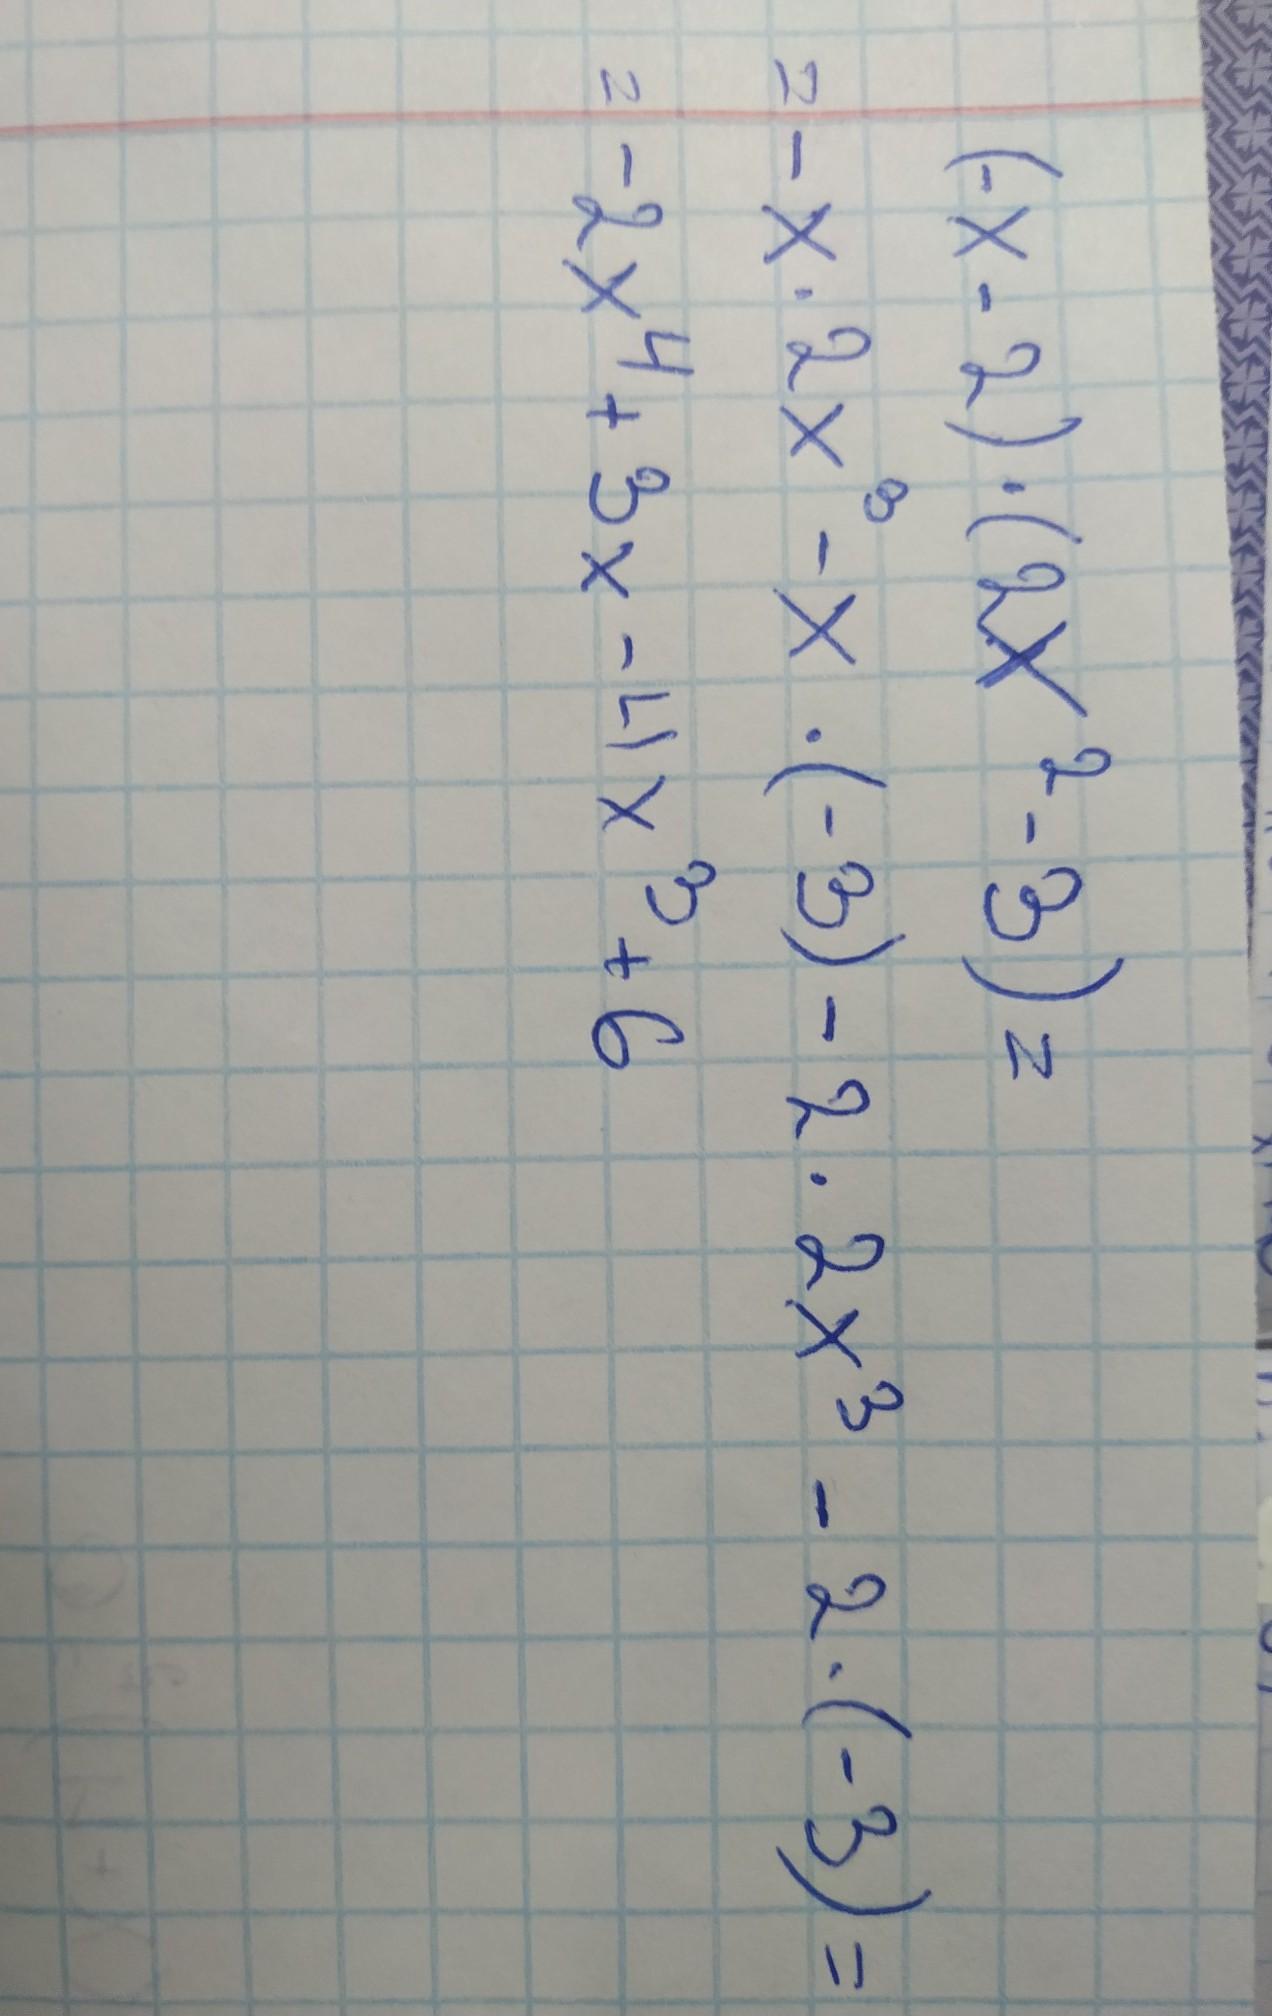 (-x-2)·(2x²-3)=
=-x·2x³-x·(-3)-2·2x³-2·(-3)=
=-2x⁴+3x-4x³+6